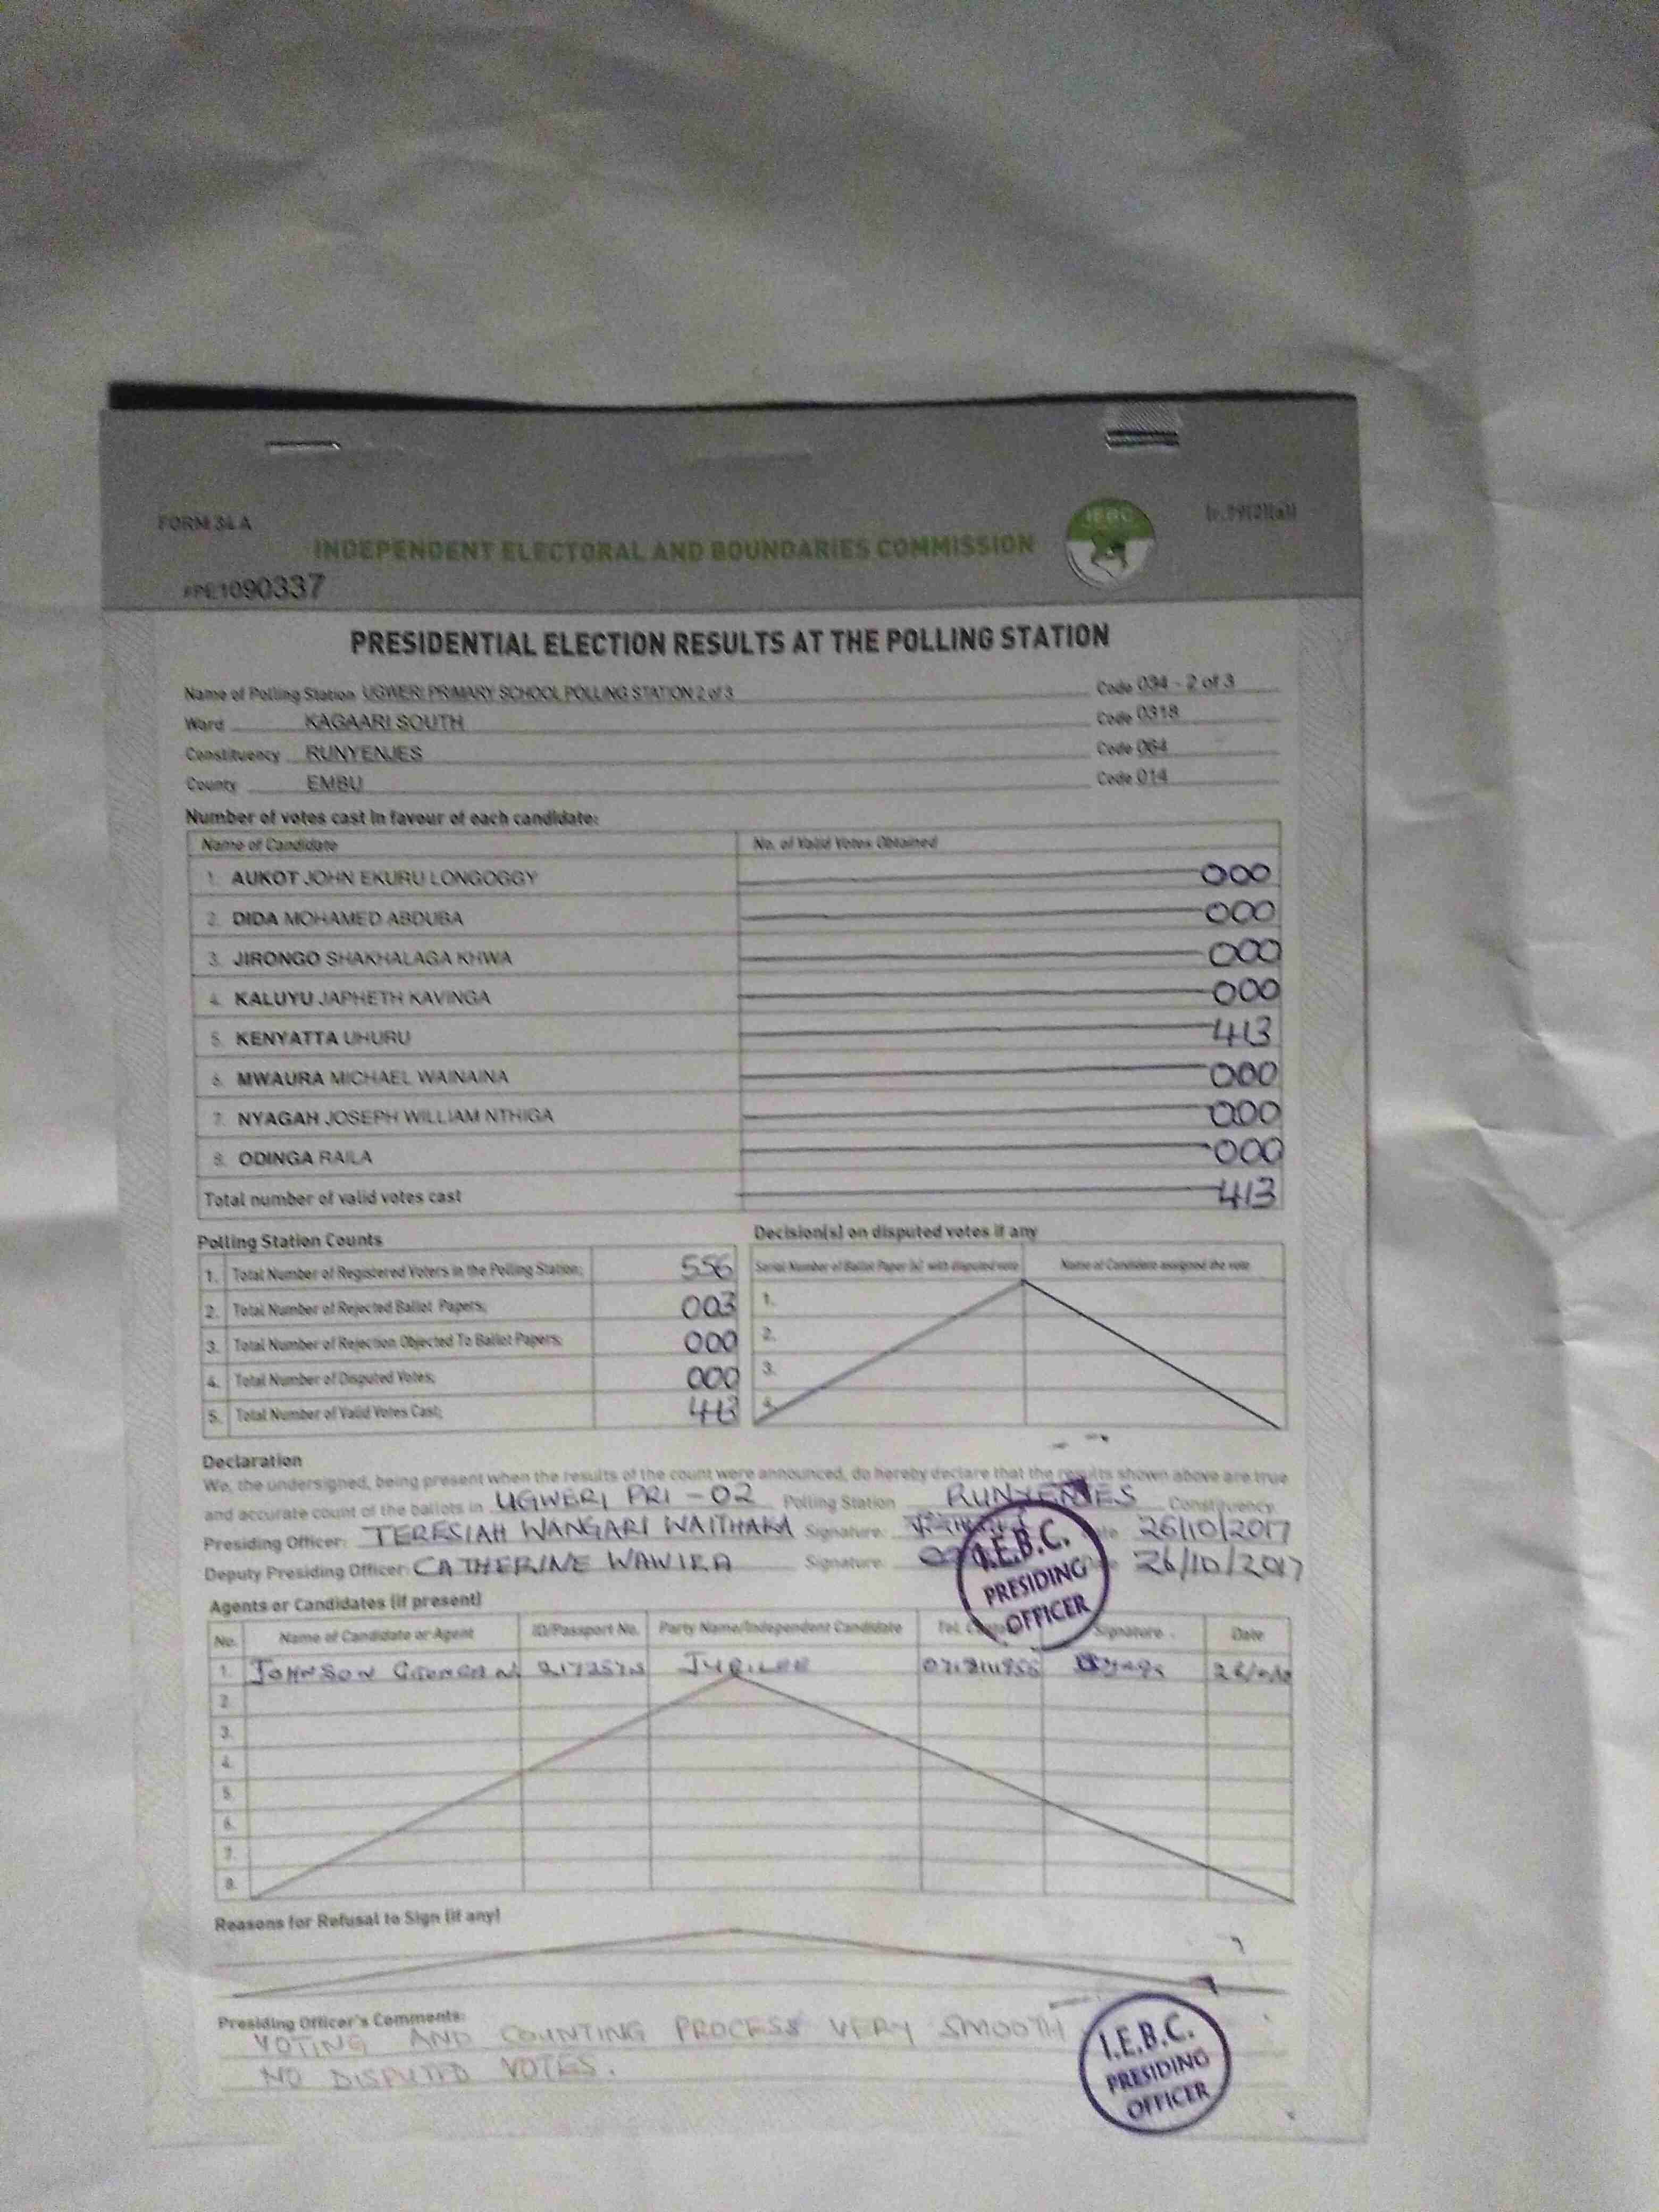 FORM 34A
(r.79(2)(a))
IEBC
INDEPENDENT ELECTORAL AND BOUNDARIES COMMISSION
#PE1090337
PRESIDENTIAL ELECTION RESULTS AT THE POLLING STATION
Name of Polling Station UGWERI PRIMARY SCHOOL POLLING STATION 2 of 3 Code 034 - 2 of 3
Ward KAGAARI SOUTH Code 0318
Constituency RUNYENJES Code 064
County EMBU Code 014
Number of votes cast in favour of each candidate:
Name of Candidate No. of Valid Votes Obtained
1. AUKOT JOHN EKURU LONGOGGY 000
2. DIDA MOHAMED ABDUBA 000
3. JIRONGO SHAKHALAGA KHWA 000
4. KALUYU JAPHETH KAVINGA 000
5. KENYATTA UHURU 413
6. MWAURA MICHAEL WAINAINA 000
7. NYAGAH JOSEPH WILLIAM NTHIGA 000
8. ODINGA RAILA 000
Total number of valid votes cast 413
Polling Station Counts
1. Total Number of Registered Voters in the Polling Station; 556
2. Total Number of Rejected Ballot Papers; 003
3. Total Number of Rejection Objected To Ballot Papers; 000
4. Total Number of Disputed Votes; 000
5. Total Number of Valid Votes Cast; 413
Decision(s) on disputed votes if any
Serial Number of Ballot Paper (s) with disputed vote Name of Candidate assigned the vote
1.
2.
3.
4.
Declaration
We, the undersigned, being present when the results of the count were announced, do hereby declare that the results shown above are true
and accurate count of the ballots in UGWERI PRI - 02 Polling Station RUNYENJES Constituency.
Presiding Officer: TERESIAH WANGARI WAITHAKA Signature: Date 26/10/2017
Deputy Presiding Officer: CATHERINE WAWIRA Signature: Date 26/10/2017
I.E.B.C.
PRESIDING
OFFICER
Agents or Candidates (if present)
No. Name of Candidate or Agent ID/Passport No. Party Name/Independent Candidate Tel. Signature Date
1. JOHNSON JUBILEE
2.
3.
4.
5.
6.
7.
8.
Reasons for Refusal to Sign (if any)
Presiding Officer's Comments:
VOTING AND COUNTING PROCESS VERY SMOOTH
NO DISPUTED VOTES.
I.E.B.C.
PRESIDING
OFFICER